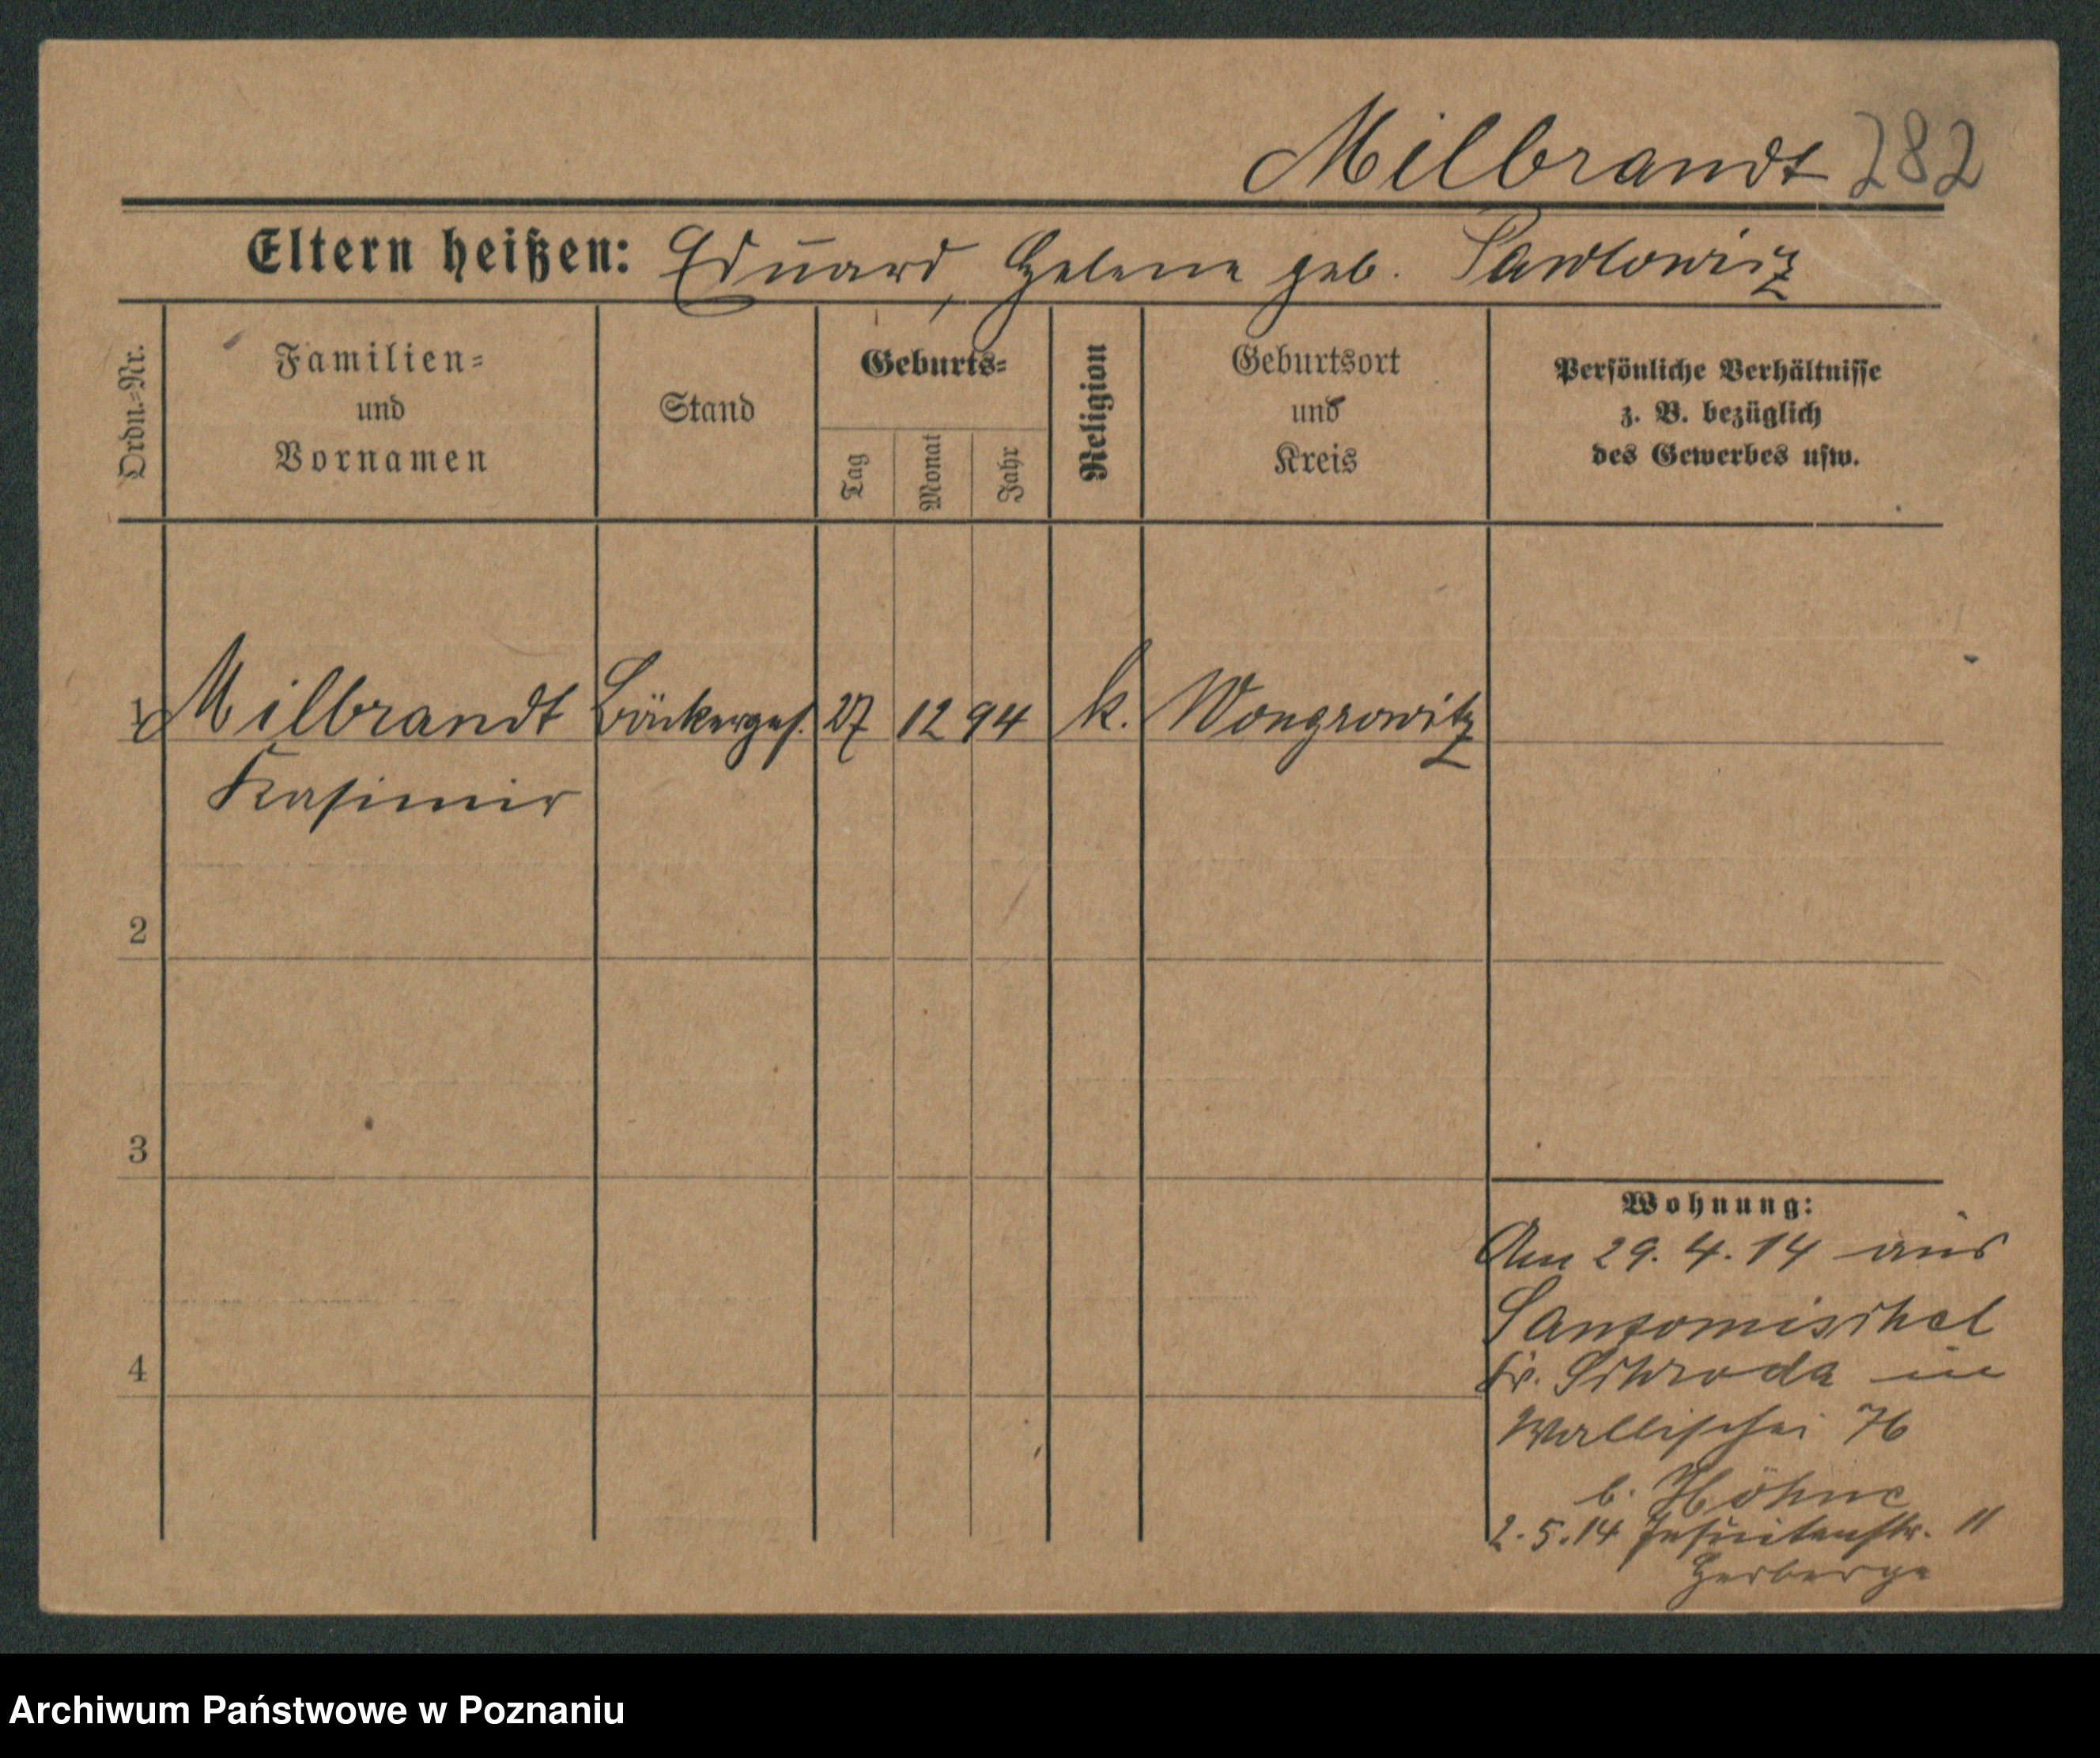 Milbrandt 282
Eltern heißen: Eduard, Helene geb. Pawlowicz
Ordn.=Nr.
Familien=
und
Vornamen
Stand
Geburts=
Tag
Monat
Jahr
Religion
Geburtsort
und
Kreis
Persönliche Verhältnisse
z. B. bezüglich
des Gewerbes usw.
1 Milbrandt Bäckerges. 27 12 94 k. Wongrowitz
Kasimir
2
3
4
Wohnung:
Am 29. 4. 14 aus
Santomischel
Kr. Schroda in
Wallischei 76
b. Höhne
2. 5. 14 Jesuitenstr. 11
Herberge
Archiwum Państwowe w Poznaniu